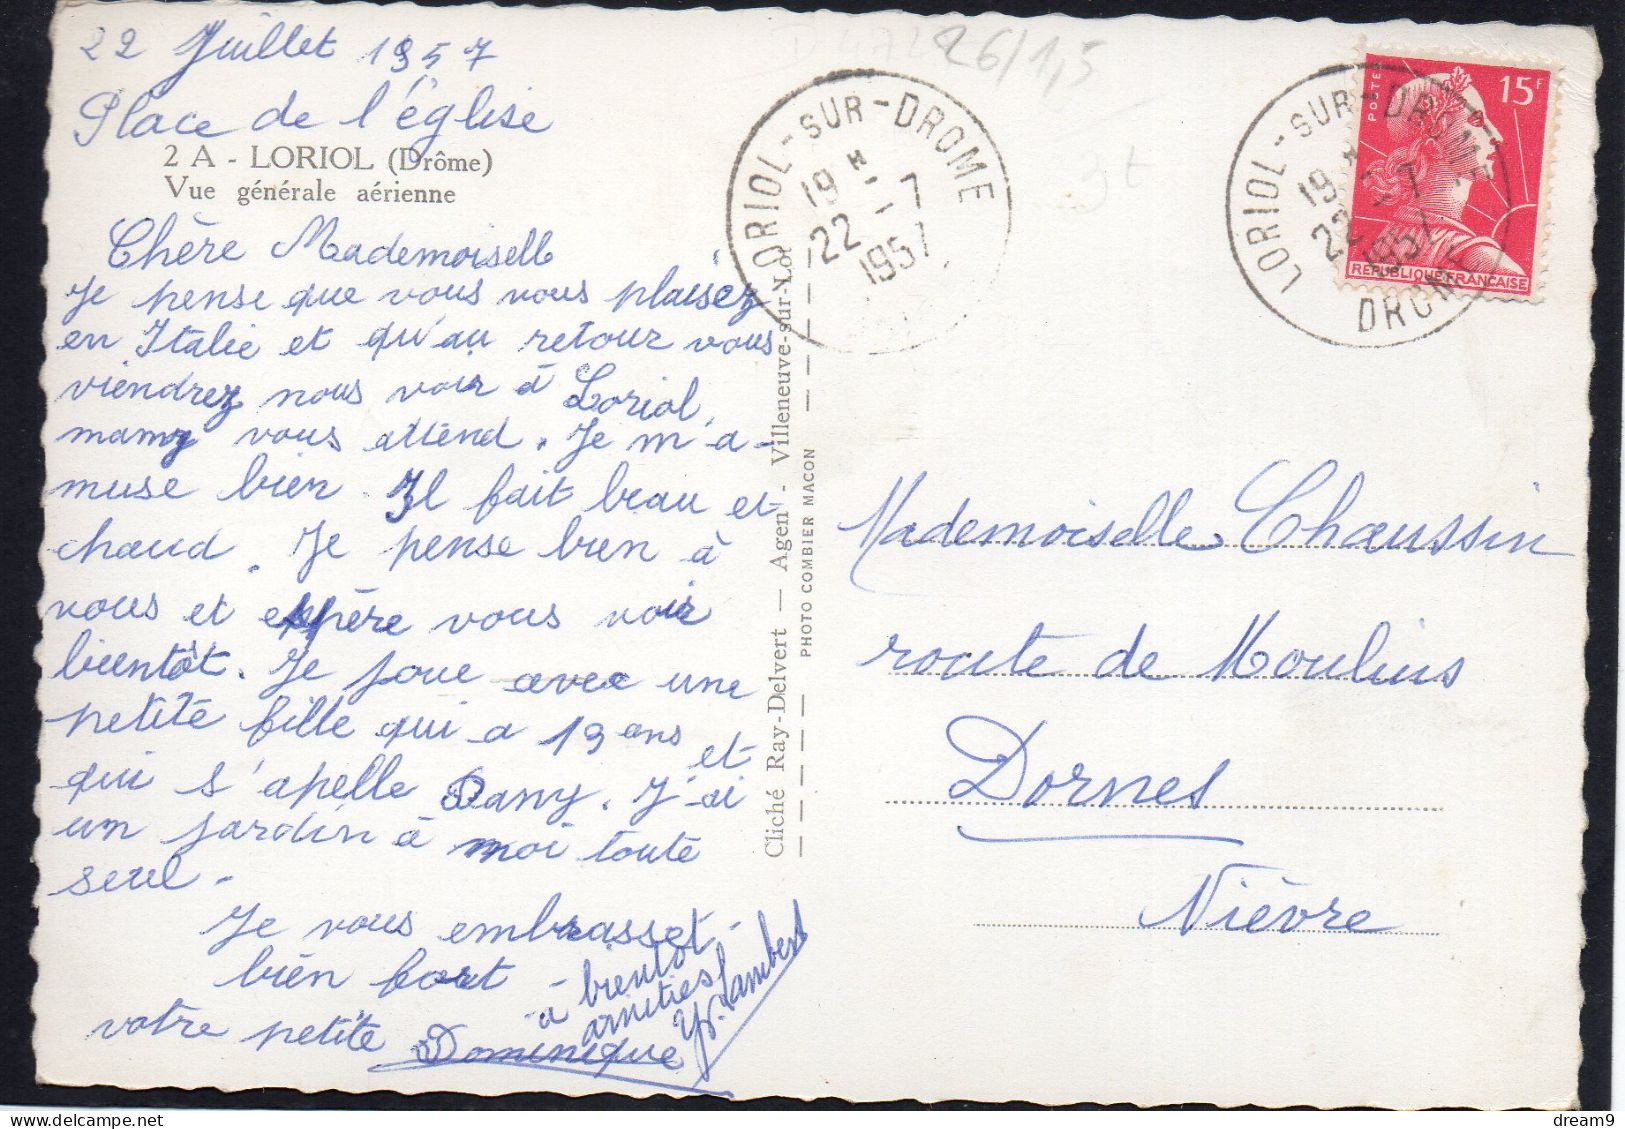 22 Juillet 1957
Place de l'église
2 A - LORIOL (Drôme)
Vue générale aérienne
Chère Mademoiselle
Je pense que vous vous plaisez
en Italie et qu'au retour vous
viendrez nous voir à Loriol,
mamy vous attend. Je m'a-
muse bien. Il fait beau et
chaud. Je pense bien à
vous et espère vous voir
bientôt. Je joue avec une
petite fille qui a 19 ans et
qui s'apelle Dany. J'ai
un jardin à moi toute
seul.
Je vous embrasset
bien fort
votre petite Dominique
à bientôt
amitiés
Y. Lambert
Cliché Ray-Delvert — Agen - Villeneuve-sur-Lot
PHOTO COMBIER MACON
26/1,5
3t
LORIOL-SUR-DROME
19 H
22 - 7
1957
LORIOL-SUR-DROME
19 H
22 - 7
1957
DROME
POSTES
15F
REPUBLIQUE FRANÇAISE
Mademoiselle Chaussin
route de Moulins
Dornes
Nièvre
delcampe.net
dream9